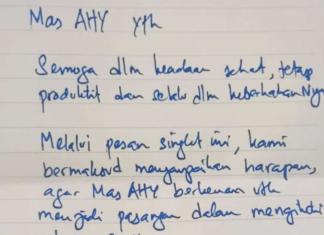 Mas AHY yth
Semoga dlm keadaan sehat, tetap
produktif dan selalu dlm keberkahanNya
Melalui pesan singkat ini, kami
bermaksud menyampaikan harapan,
agar Mas AHY berkenan utk
menjadi pasangan dalam mengikuti